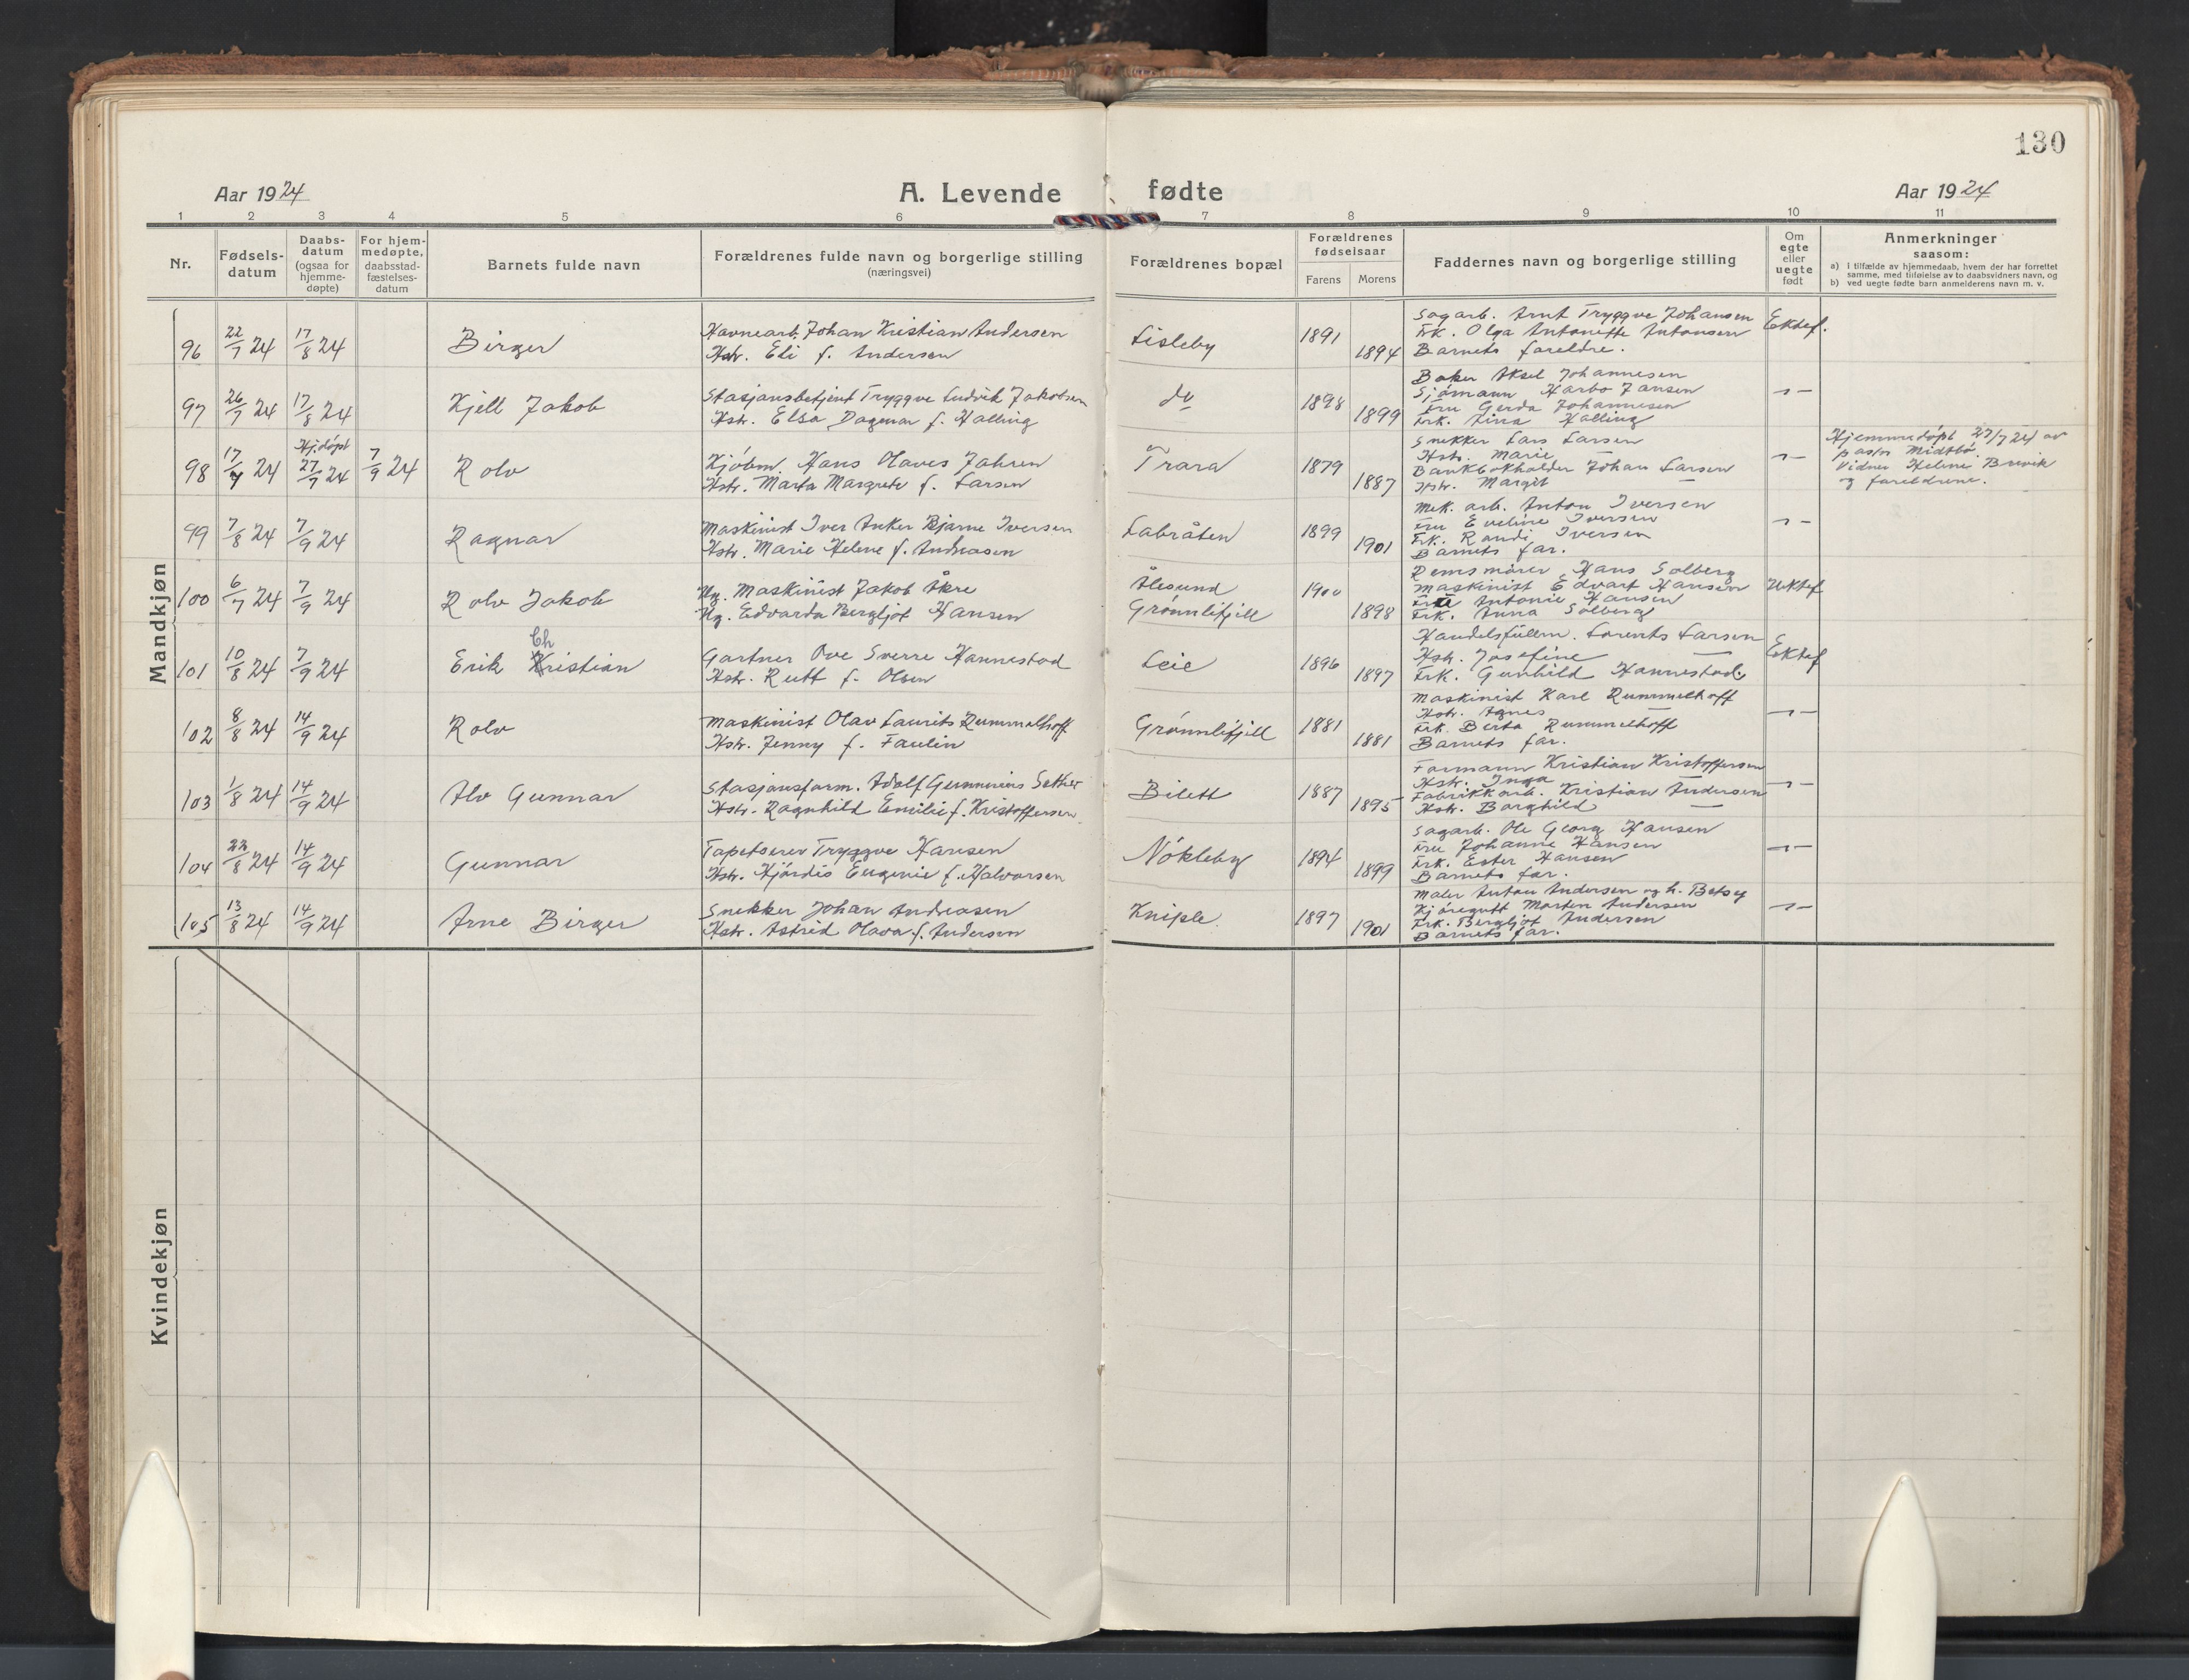 130
Aar 1924
A. Levende fødte
Aar 1924
1 2 3 4 5 6 7 8 9 10 11
Nr.
Fødsels-
datum
Daabs-
datum
(ogsaa for
hjemme-
døpte)
For hjem-
medøpte,
daabsstad-
fæstelses-
datum
Barnets fulde navn
Forældrenes fulde navn og borgerlige stilling
(næringsvei)
Forældrenes bopæl
Forældrenes
fødselsaar
Farens Morens
Faddernes navn og borgerlige stilling
Om
egte
eller
uegte
født
Anmerkninger
saasom:
a) i tilfælde av hjemmedaab, hvem der har forrettet
samme, med tilføielse av to daabsvidners navn, og
b) ved uegte fødte barn anmelderens navn m. v.
Mandkjøn
96 22/7 24 17/8 24 Birger
Havnearb. Johan Kristian Andersen
Hstr. Eli f. Andersen
Lisleby 1891 1894
Sagarb. Arnt Tryggve Johansen
Frk. Olga Antonette Antonsen
Barnets foreldre.
Ektef.
97 26/7 24 17/8 24 Kjell Jakob
Stasjonsbetjent Tryggve Ludvik Jakobsen
Hstr. Elsa Dagmar f. Halling
do 1898 1899
Baker Aksel Johannesen
Sjømann Harbo Jansen
Fru Gerda Johannesen
Frk. Lina Halling
-"-
98 17/7 24 Hj.døpt 27/7 24 7/9 24 Rolv
Kjøbm. Hans Olaves Jahren
Hstr. Marta Margrete f. Larsen
Trara 1879 1887
Snekker Lars Larsen
Hstr. Marie —
Bankbokholder Johan Larsen
Hstr. Margit —
-"-
Hjemmedøpt 27/7 24 av
pastor Midtbø.
Vidner Helene Brevik
og foreldrene.
99 7/8 24 7/9 24 Ragnar
Maskinist Iver Anker Bjarne Iversen
Hstr. Marie Helene f. Andreasen
Labråten 1899 1901
Mek. arb. Anton Iversen
Fru Eveline Iversen
Frk. Randi Iversen
Barnets far.
-"-
100 6/7 24 7/9 24 Rolv Jakob
Ug. Maskinist Jakob Åkre
Ug. Edvarda Bergljot Hansen
Ålesund
Grønnlifjell
1900 1898
Remsmører Hans Solberg
Maskinist Edvart Hansen
Antonie Hansen
Frk. Anna Solberg
Uektef
101 10/8 24 7/9 24 Ch
Erik Kristian
Gartner Ove Sverre Hannestad
Hstr. Rutt f. Olsen
Leie 1896 1897
Handelsfullm. Lorents Larsen
Hstr. Josefine —
Frk. Gunhild Hannestad.
Ektef
102 8/8 24 14/9 24 Rolv
Maskinist Olav Laurits Rummelhoff
Hstr. Jenny f. Faulin
Grønnlifjell 1881 1881
Maskinist Karl Rummelhoff
Hstr. Agnes —
Frk. Berta Rummelhoff
Barnets far.
-"-
103 1/8 24 14/9 24 Alv Gunnar
Stasjonsform. Adolf Gunnerius Sether
Hstr. Ragnhild Emilie f. Kristoffersen
Bilett 1887 1895
Formann Kristian Kristoffersen
Hstr. Inga —
Fabrikkarb. Kristian Andersen
Hstr. Borghild —
-"-
104 22/8 24 14/9 24 Gunnar
Tapetserer Tryggve Hansen
Hstr. Hjørdis Eugenie f. Halvorsen
Nøkleby 1894 1899
Sagarb. Ole Georg Hansen
Fru Johanne Hansen
Frk. Ester Hansen
Barnets far.
-"-
105 13/8 24 14/9 24 Arne Birger
Snekker Johan Andreasen
Hstr. Astrid Olava f. Andersen
Kniple 1897 1901
Maler Anton Andersen og h. Betsy
Kjøregutt Morten Andersen
Frk. Bergljot Andersen
Barnets far.
-"-
Kvindekjøn